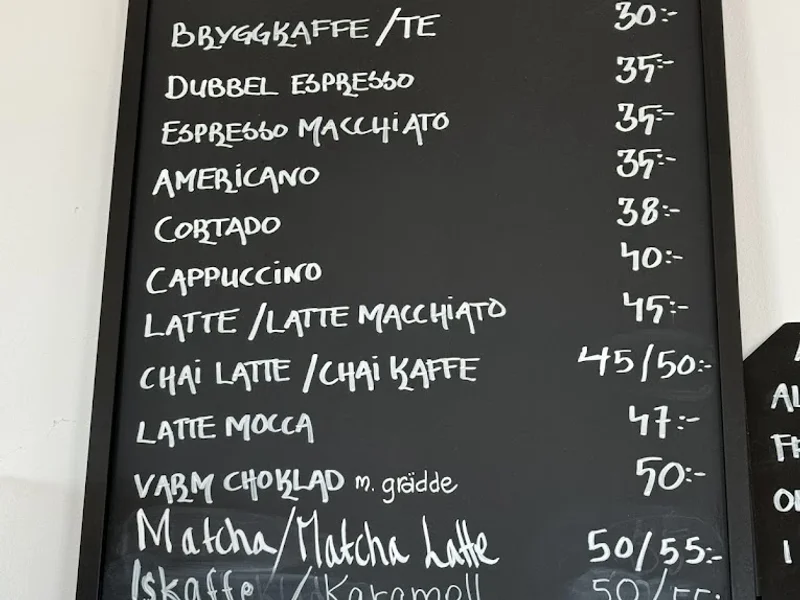 BRYGGKAFFE/TE 30:-
DUBBEL ESPRESSO 35:-
ESPRESSO MACCHiATO 35:-
AMERiCANO 35:-
CORTADO 38:-
CAPPUCCiNO 40:-
LATTE/LATTE MACCHiATO 45:-
CHAi LATTE/CHAi KAFFE 45/50:-
LATTE MOCCA 47:-
VARM CHOKLAD m. grädde 50:-
Matcha/Matcha Latte 50/55:-
Iskaffe/Karamell 50/55:-